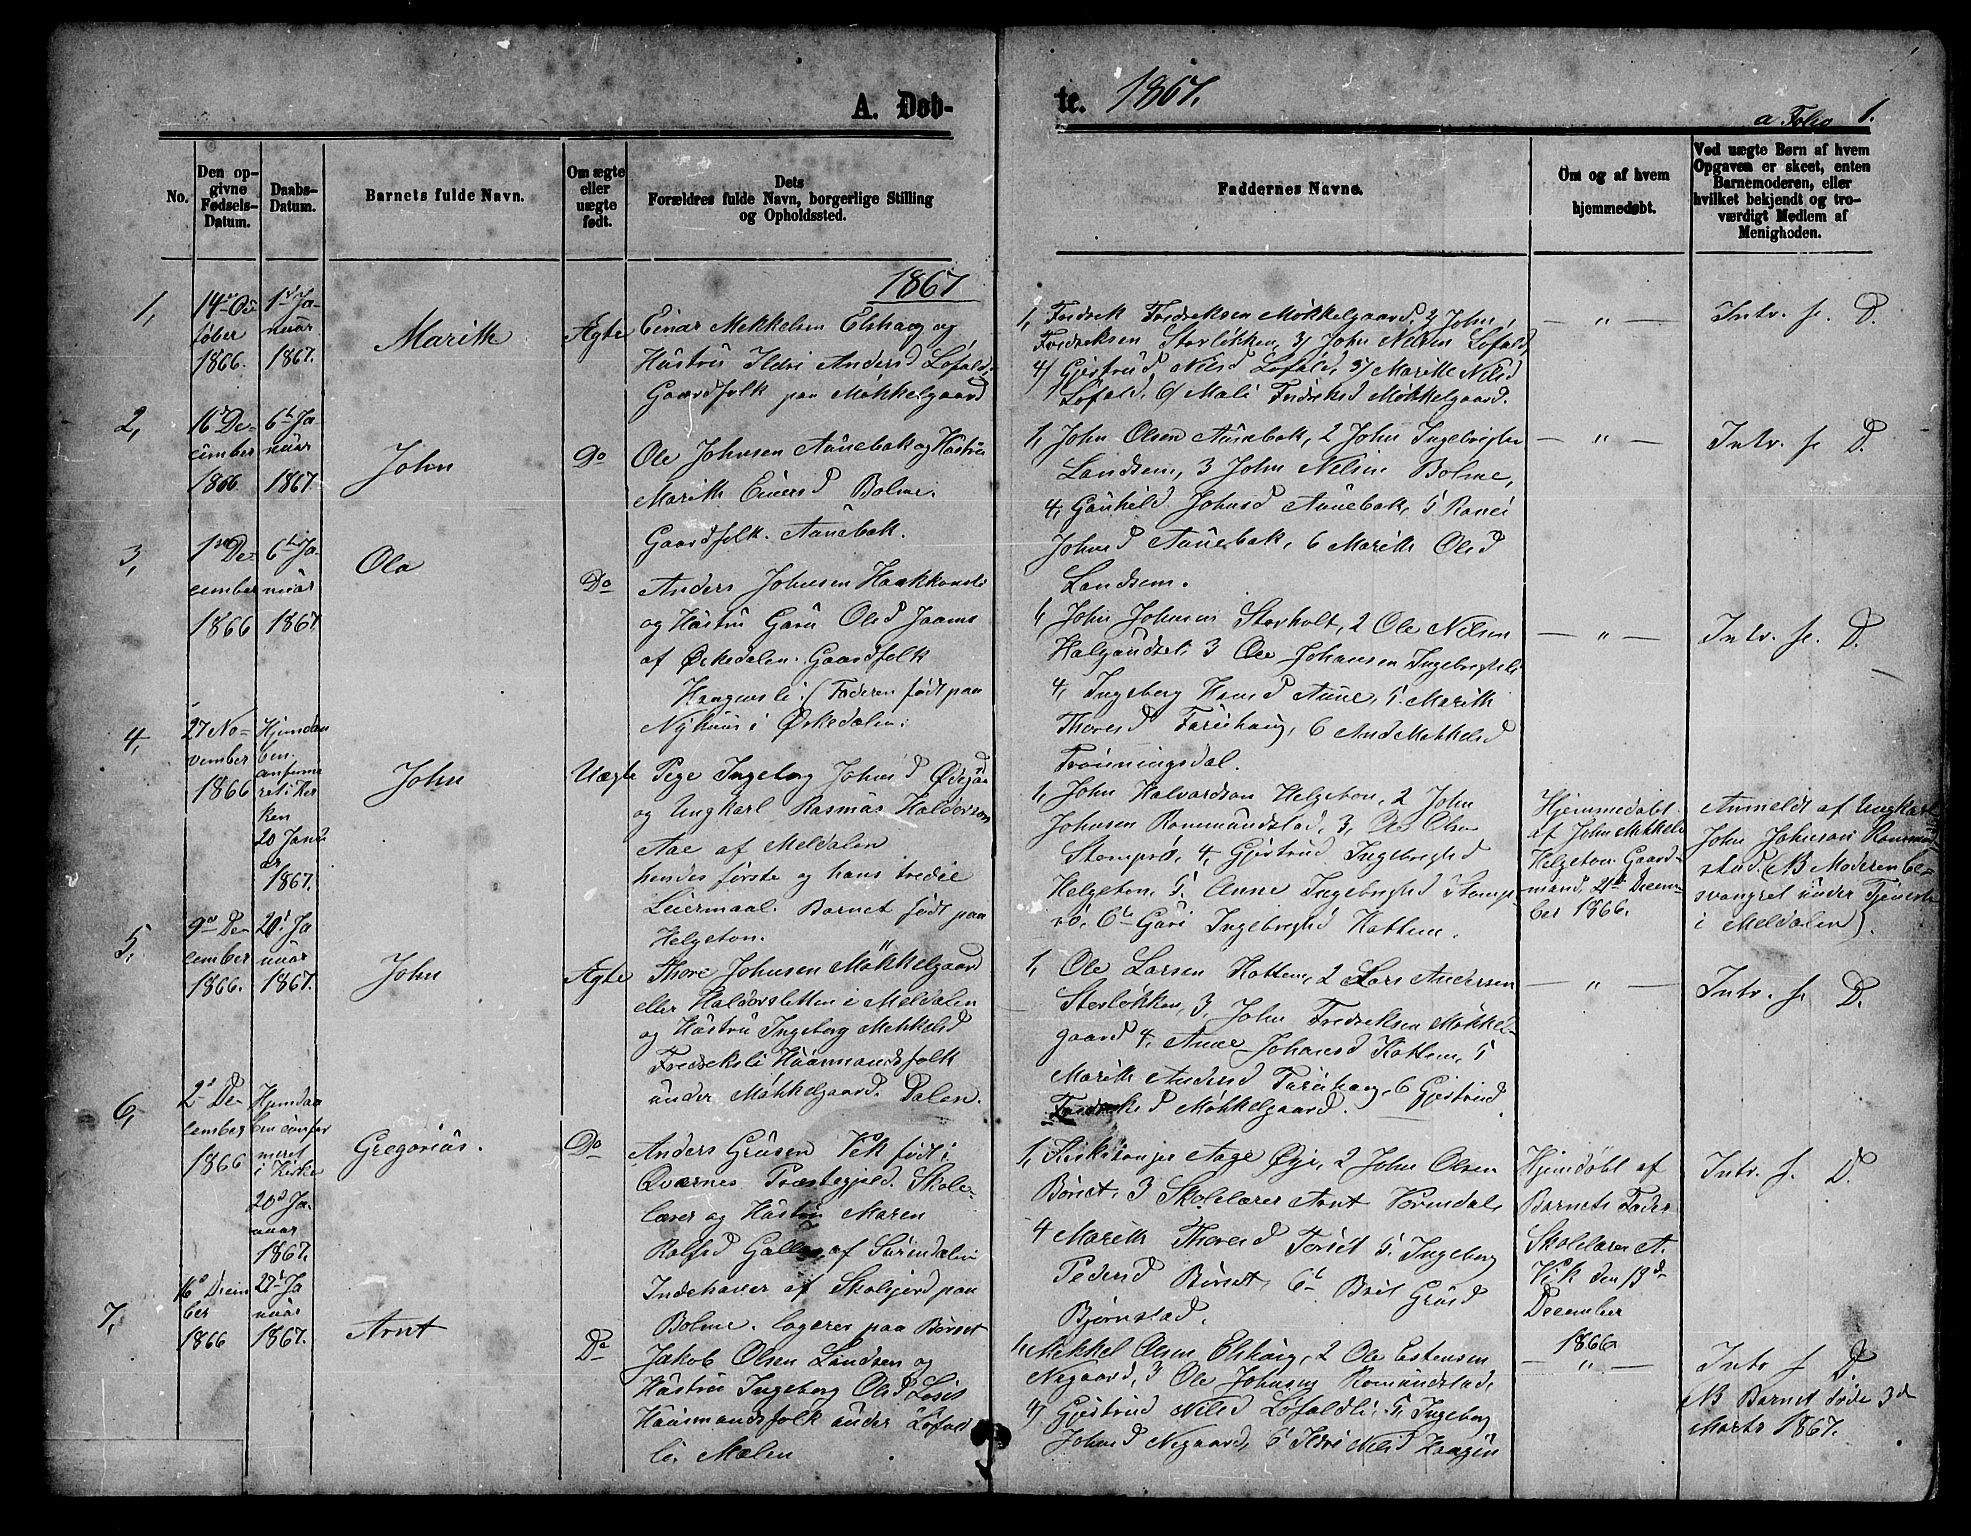 A. Døb-
te. 1867.
a Folio 1.
No.
Den op-
givne
Fødsels-
Datum.
Daabs-
Datum.
Barnets fulde Navn.
Om ægte
eller
uægte
født.
Dets
Forældres fulde Navn, borgerlige Stilling
og Opholdssted.
Faddernes Navne.
Om og af hvem
hjemmedøbt.
Ved uægte Børn af hvem
Opgaven er skeet, enten
Barnemoderen, eller
hvilket bekjendt og tro-
værdigt Medlem af
Menigheden.
1867
1,
14de Oc
tober
1866.
1st Ja-
nuar
1867.
Marith
Ægte
Einar Mekkelsen Elshaug og
Hustru Ildri Andersd Løfald,
Gaardfolk paa Møkkelgaard
1, Fredrik Fredriksen Møkkelgaard, 2 John
Fredriksen Storløkken, 3, John Nilsen Løfald,
4, Gjertrud Nilsd Løfald, 5, Marith Nilsd
Løfald, 6, Mali Fredriksd Møkkelgaard.
— " —
Intr. f. D.
2,
16 De-
cember
1866
6t Ja-
nuar
1867.
John
Do
Ole Johnsen Aunebak og Hustru
Marith Einersd Bolme.
Gaardfolk. Aunebak.
1, John Olsen Aunebak, 2 John Ingebrigtsen
Landsem, 3 John Nilsen Bolme,
4, Gunhild Johnsd Aunebak, 5 Ranei
Johnsd Aunebak, 6 Marith Olsd
Landsem.
— " —
Intr. f. D.
3,
1ste De-
cember
1866
6t Ja-
nuar
1867
Ola
Do
Anders Johnsen Haakkonsli
og Hustru Guru Olsd Jaams
af Ørkedalen. Gaardfolk
Haagensli. (Faderen født paa
Nyhuus i Ørkedalen.
1, John Johnsen Storholt, 2 Ole Nilsen
Halgundset, 3 Ole Johansen Ingebrigtsli
4, Ingeborg Hansd Aune, 5. Marith
Thoresd Taruhaug, 6 And Mekkelsd
Trønningsdal.
— " —
Intr. f. D.
4,
27 No-
vember
1866
Hjemdøn
ben
confirme
ret i Kir
ken
20 Janu
ar
1867.
John
Uægte
Pige Ingeborg Johnsd Ødegaa
og Ungkarl Rasmus Haldorsen
Aae af Meldalen
hendes første og hans tredie
Leiermaal. Barnet født paa
Helgeton.
1, John Halvardsen Helgeton, 2 John
Johnsen Rommundstad, 3, Ole Olsen
Stomprø, 4, Gjertrud Ingebrigtsd
Helgeton, 5. Anne Ingebrigtsd Stomp
rø, 6te Guri Ingebrigtsd Kattem.
Hjemmedøbt
af John Mekkels
Helgeton Gaard-
mand, 21de Decem-
ber 1866.
Anmeldt af Ungkarl
John Johnson Romund
stad. (NB Moderen be-
svangret under Tjeneste
i Meldalen).
5,
9de De-
cember
1866.
20de Ja
nuar
1867.
John
Ægte
Thore Johnsen Møkkelgaard
eller Haldorsletten i Meldalen
og Hustru Ingeborg Mekkelsd
Fredriksli Huusmandsfolk
under Møkkelgaard. Dalen.
1, Ole Larsen Kattem, 2 Lars Andersen
Storløkken, 3, John Fredriksen Møkkel-
gaard 4, Anne Johansd Kattem, 5
Marith Andersd Taruhaug, 6 Gjertrud
Fredriksd Møkkelgaard.
— " —
Intr. f. D.
6,
2de De-
cember
1866
Hjemdaa
ben confir
meret
i Kirke
20de Ja-
nuar
1867.
Gregorius.
Do
Anders Grusen Vik født i
Qværnes Præstegjeld. Skole-
lærer og Hustru Maren
Rolfsd Galles af Surendalen
Indehaver af Skolejord paa
Bolme. logerer paa Børset
1, Kirkesanger Aage Øye, 2 John Olsen
Børset, 3 Skolelærer Arnt Torendal,
4 Marith Thoresd Torset 5. Ingeborg
Pedersd Børset, 6te Brit Grusd
Bjørnstad.
Hjemdøbt af
Barnets Fader
Skolelærer A.
Vik den 13de
December
1866
Intr. f. D.
7,
16de Decem
ber
1866
27de Ja
nuar
1867.
Arnt
Do
Jakob Olsen Landsem og
Hustru Ingeborg Olsd Løset
Huusmandsfolk under Løfald
li. Mælen
1, Mekkel Olsen Elshaug, 2 Ole Estensen
Negaard, 3 Ole Johnsen Romundstad,
4, Gjertrud Nilsd Løfaldli, 5, Ingeborg
Johnsd Negaard, 6 Ildri Nilsd
— " —
Intr f D.
NB Barnet døde 3de
Marts 1867.